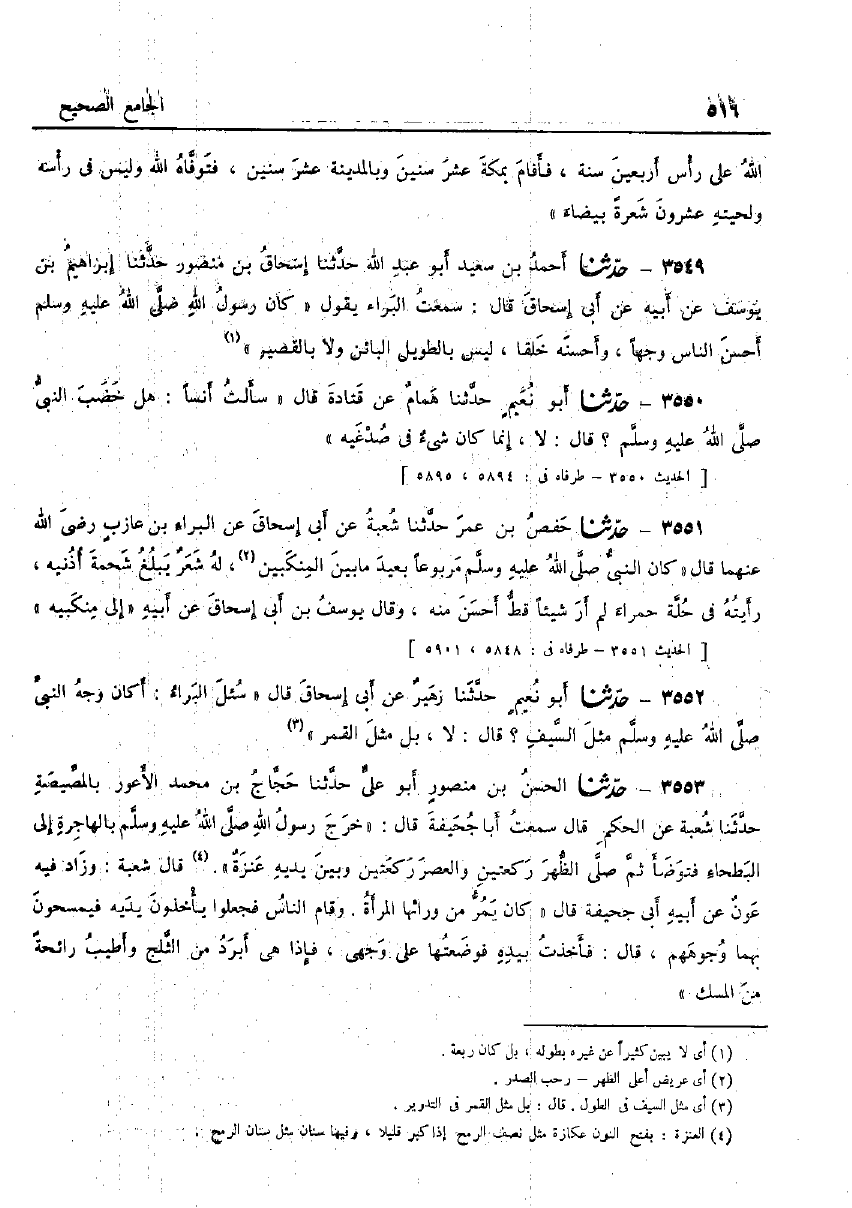 ٥١٦ الجامع الصحيح
اللهُ على رأس أربعينَ سنة ، فأقامَ بمكةَ عشرَ سنينَ وبالمدينة عشرَ سنين ، فتَوفَّاهُ الله وليس فى رأسه
ولحيتهِ عشرونَ شَعرةً بيضاءَ »
٣٥٤٩ – حدّثنا أحمدُ بن سعيد أبو عبدِ الله حدَّثنا إسحاقُ بن مَنصور حدَّثنا إبراهيمُ بن
يوسفَ عن أبيه عن أبى إسحاقَ قال : سمعتُ البَراء يقول « كان رسولُ اللهِ صلَّى اللهُ عليهِ وسلم
أحسنَ الناس وجهاً ، وأحسنَه خَلقا ، ليس بالطويل البائن ولا بالقصير »(١)
٣٥٥٠ – حدّثنا أبو نُعَيمٍ حدَّثنا هَمامٌ عن قَتادةَ قال « سألتُ أنساً : هل خَضَبَ النبىُّ
صلَّى اللهُ عليهِ وسلَّم ؟ قال : لا ، إنما كان شىءٌ فى صُدْغَيه »
[ الحديث ٣٥٥٠ – طرفاه فى : ٥٨٩٤ ، ٥٨٩٥ ]
٣٥٥١ – حدّثنا حَفصُ بن عمرَ حدَّثنا شُعبةُ عن أبى إسحاقَ عن البراءِ بن عازبٍ رضىَ الله
عنهما قال « كان النبىُّ صلَّى اللهُ عليهِ وسلَّم مَربوعاً بعيدَ مابينَ المِنكَبين(٢)، لهُ شَعَرٌ يَبلُغُ شَحمةَ أُذنيه ،
رأيتُهُ فى حُلَّة حمراءَ لم أرَ شيئاً قطُّ أحسَنَ منه ، وقال يوسفُ بن أبى إسحاقَ عن أبيهِ « إلى مِنكبيه »
[ الحديث ٣٥٥١ – طرفاه فى : ٥٨٤٨ ، ٥٩٠١ ]
٣٥٥٢ – حدّثنا أبو نُعيمٍ حدَّثنا زهيرٌ عن أبى إسحاقَ قال « سُئلَ البَراءُ : أكان وجهُ النبىِّ
صلَّى اللهُ عليهِ وسلَّم مثلَ السَّيفِ ؟ قال : لا ، بل مثلَ القمر »(٣)
٣٥٥٣ – حدّثنا الحسنُ بن منصورٍ أبو علىٍّ حدَّثنا حَجَّاجُ بن محمد الأعور بالمصِّيصَةِ
حدَّثنا شعبة عن الحكمِ قال سمعتُ أبا جُحَيفةَ قال : «خرَجَ رسولُ اللهِ صلَّى اللهُ عليهِ وسلَّم بالهاجِرةِ إلى
البَطحاءِ فتوَضَأَ ثمَّ صلى الظُّهرَ رَكعتينِ والعصرَ رَكعتَين وبينَ يديهِ عَنَزَةٌ» .(٤) قال شعبة : وزاد فيه
عَونٌ عن أبيهِ أبى جحيفة قال « كان يَمُرُّ من ورائها المرأةُ . وقام الناسُ فجعلوا يأخذونَ يَدَيه فيمسحونَ
بهما وُجوهَهم ، قال : فأَخذتُ بيدِهِ فوضَعتُها على وَجْهى ، فإذا هى أبرَدُ من الثَّلج وأطيبُ رائحةً
منَ المسك »
(١) أى لا يبين كثيراً عن غيره بطوله ، بل كان ربعة .
(٢) أى عريض أعلى الظهر – رحب الصدر .
(٣) أى مثل السيف فى الطول . قال : بل مثل القمر فى التدوير .
(٤) العنزة : بفتح النون عكازة مثل نصف الرمح إذا كبر قليلا ، وفيها سنان مثل سنان الرمح .